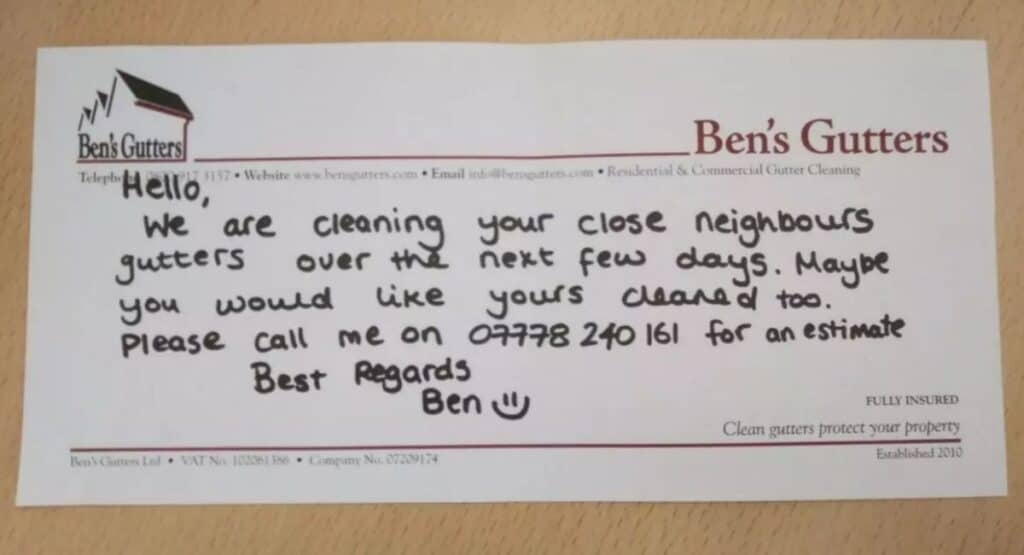 Ben's Gutters
Ben's Gutters
917 3157 • Website www.bensgutters.com • Email info@bensgutters.com • Residential & Commercial Gutter Cleaning
Hello,
We are cleaning your close neighbours
gutters over the next few days. Maybe
you would like yours cleaned too.
Please call me on 07778 240 161 for an estimate
Best Regards
Ben
FULLY INSURED
Clean gutters protect your property
Ben's Gutters Ltd • VAT No. 102061386 • Company No. 07209174
Established 2010